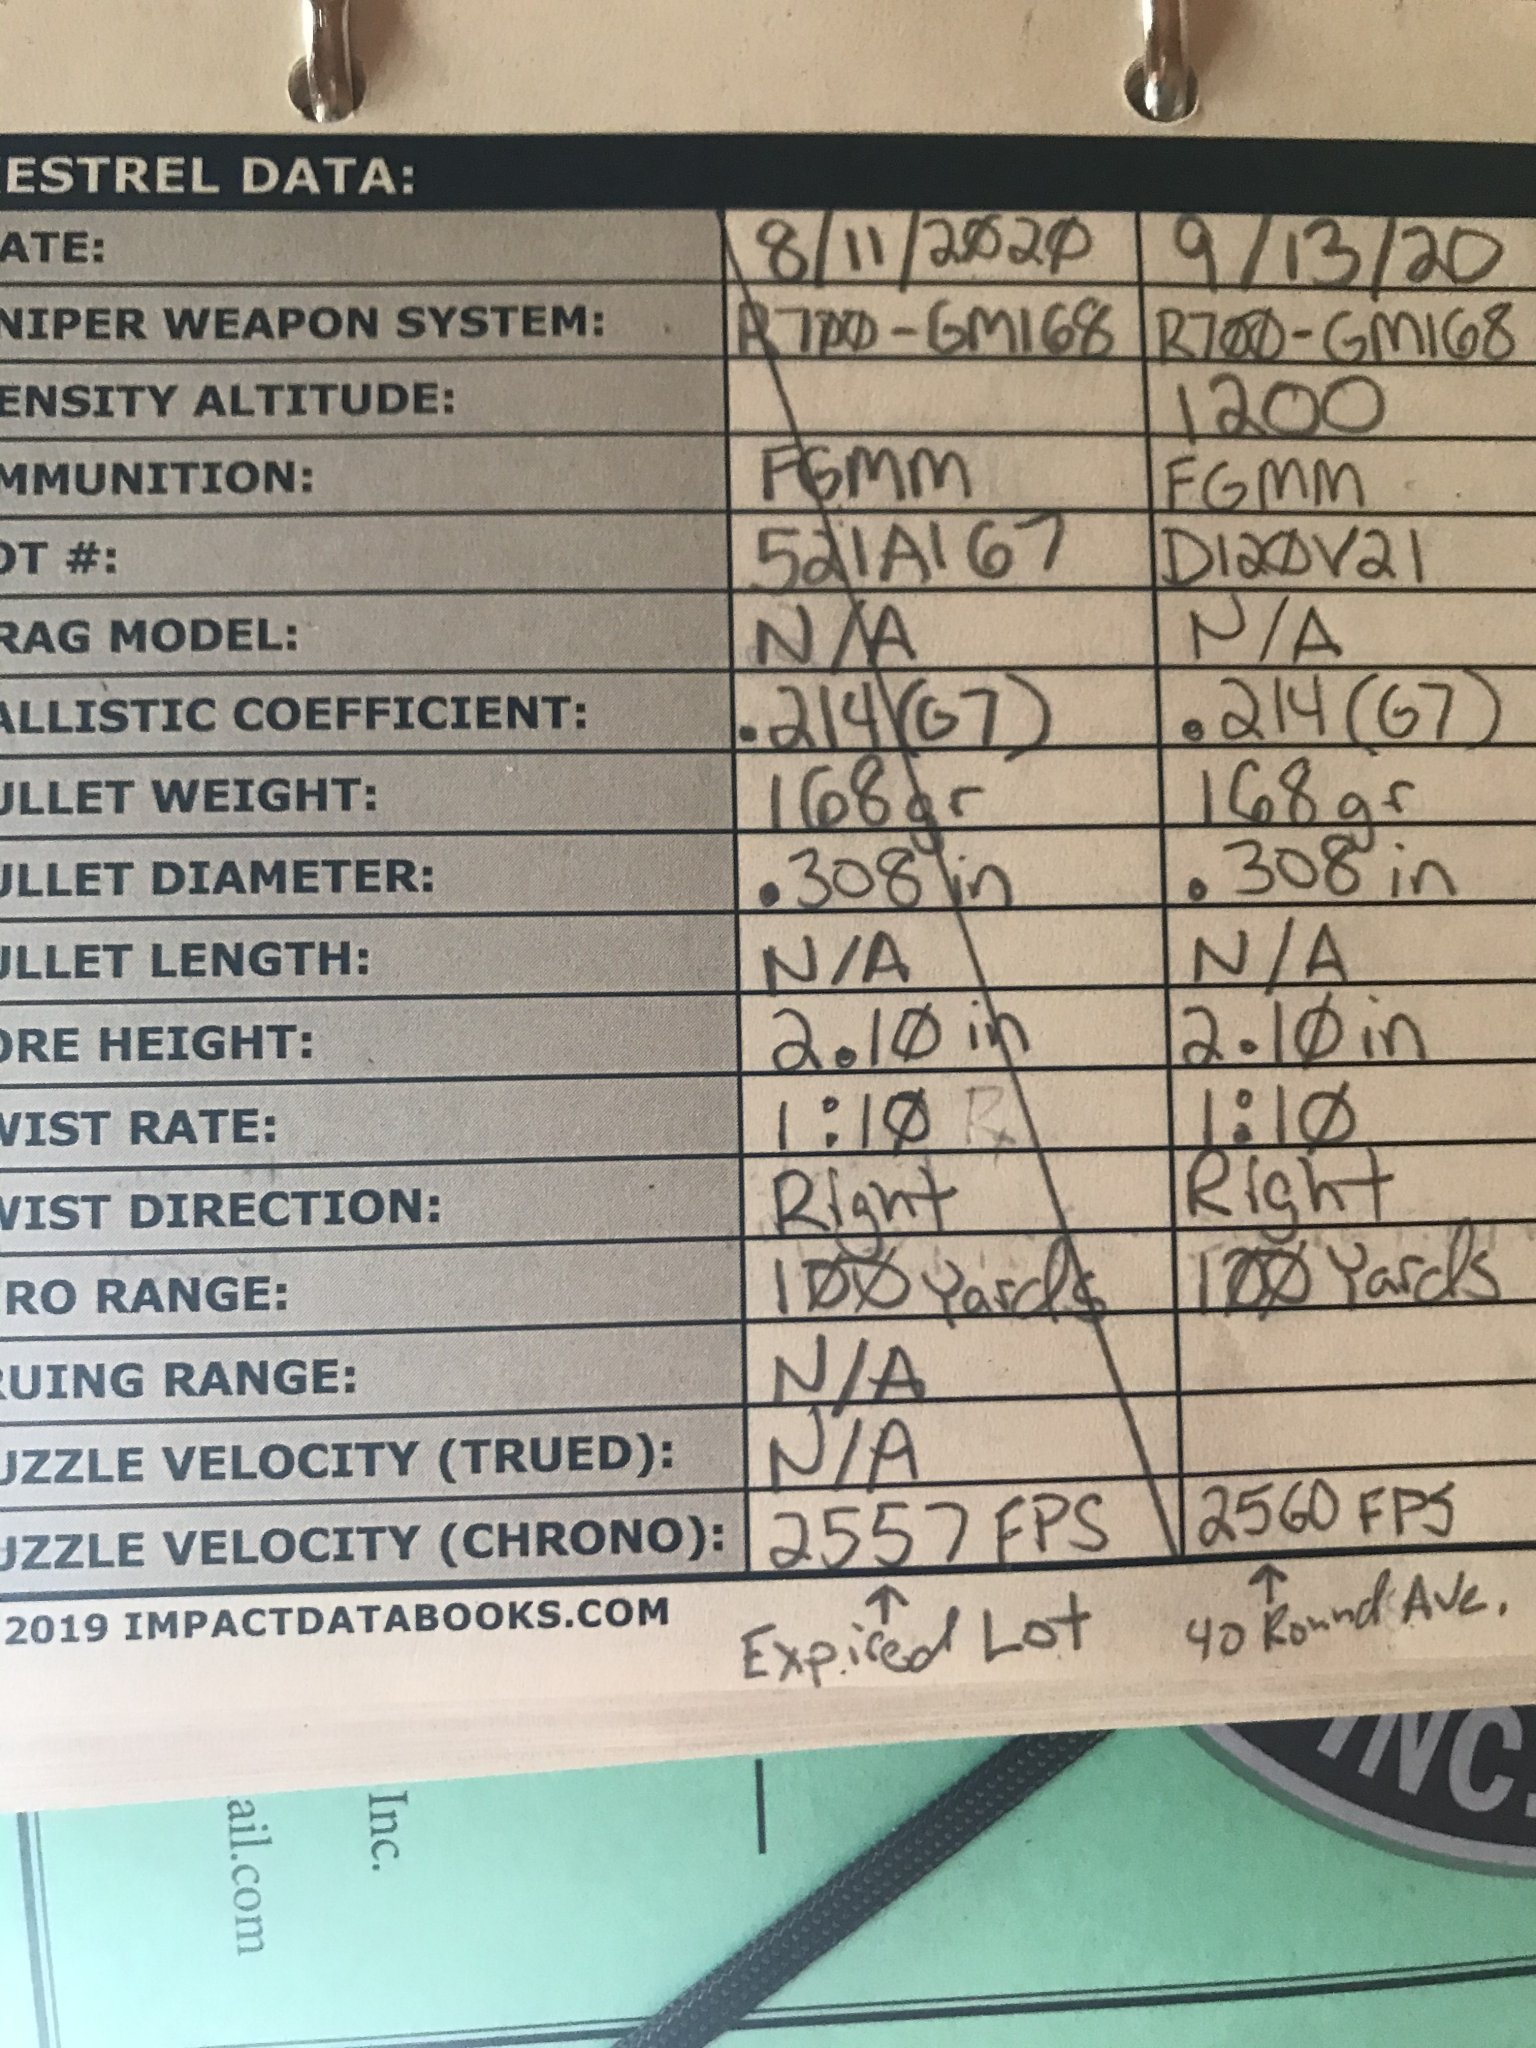 ESTREL DATA:
ATE: 8/11/2020 9/13/20
NIPER WEAPON SYSTEM: R700-GM168 R700-GM168
ENSITY ALTITUDE: 1200
MMUNITION: FGMM FGMM
OT #: 521A167 D120V21
RAG MODEL: N/A N/A
ALLISTIC COEFFICIENT: .214 (G7) .214 (G7)
ULLET WEIGHT: 168gr 168gr
ULLET DIAMETER: .308 in .308 in
ULLET LENGTH: N/A N/A
ORE HEIGHT: 2.10 in 2.10 in
WIST RATE: 1:10 1:10
WIST DIRECTION: Right Right
RO RANGE: 100 Yards 100 Yards
RUING RANGE: N/A
UZZLE VELOCITY (TRUED): N/A
UZZLE VELOCITY (CHRONO): 2557 FPS 2560 FPS
2019 IMPACTDATABOOKS.COM
↑ Expired Lot ↑ 40 Round Ave.
INC.
Inc.
ail.com